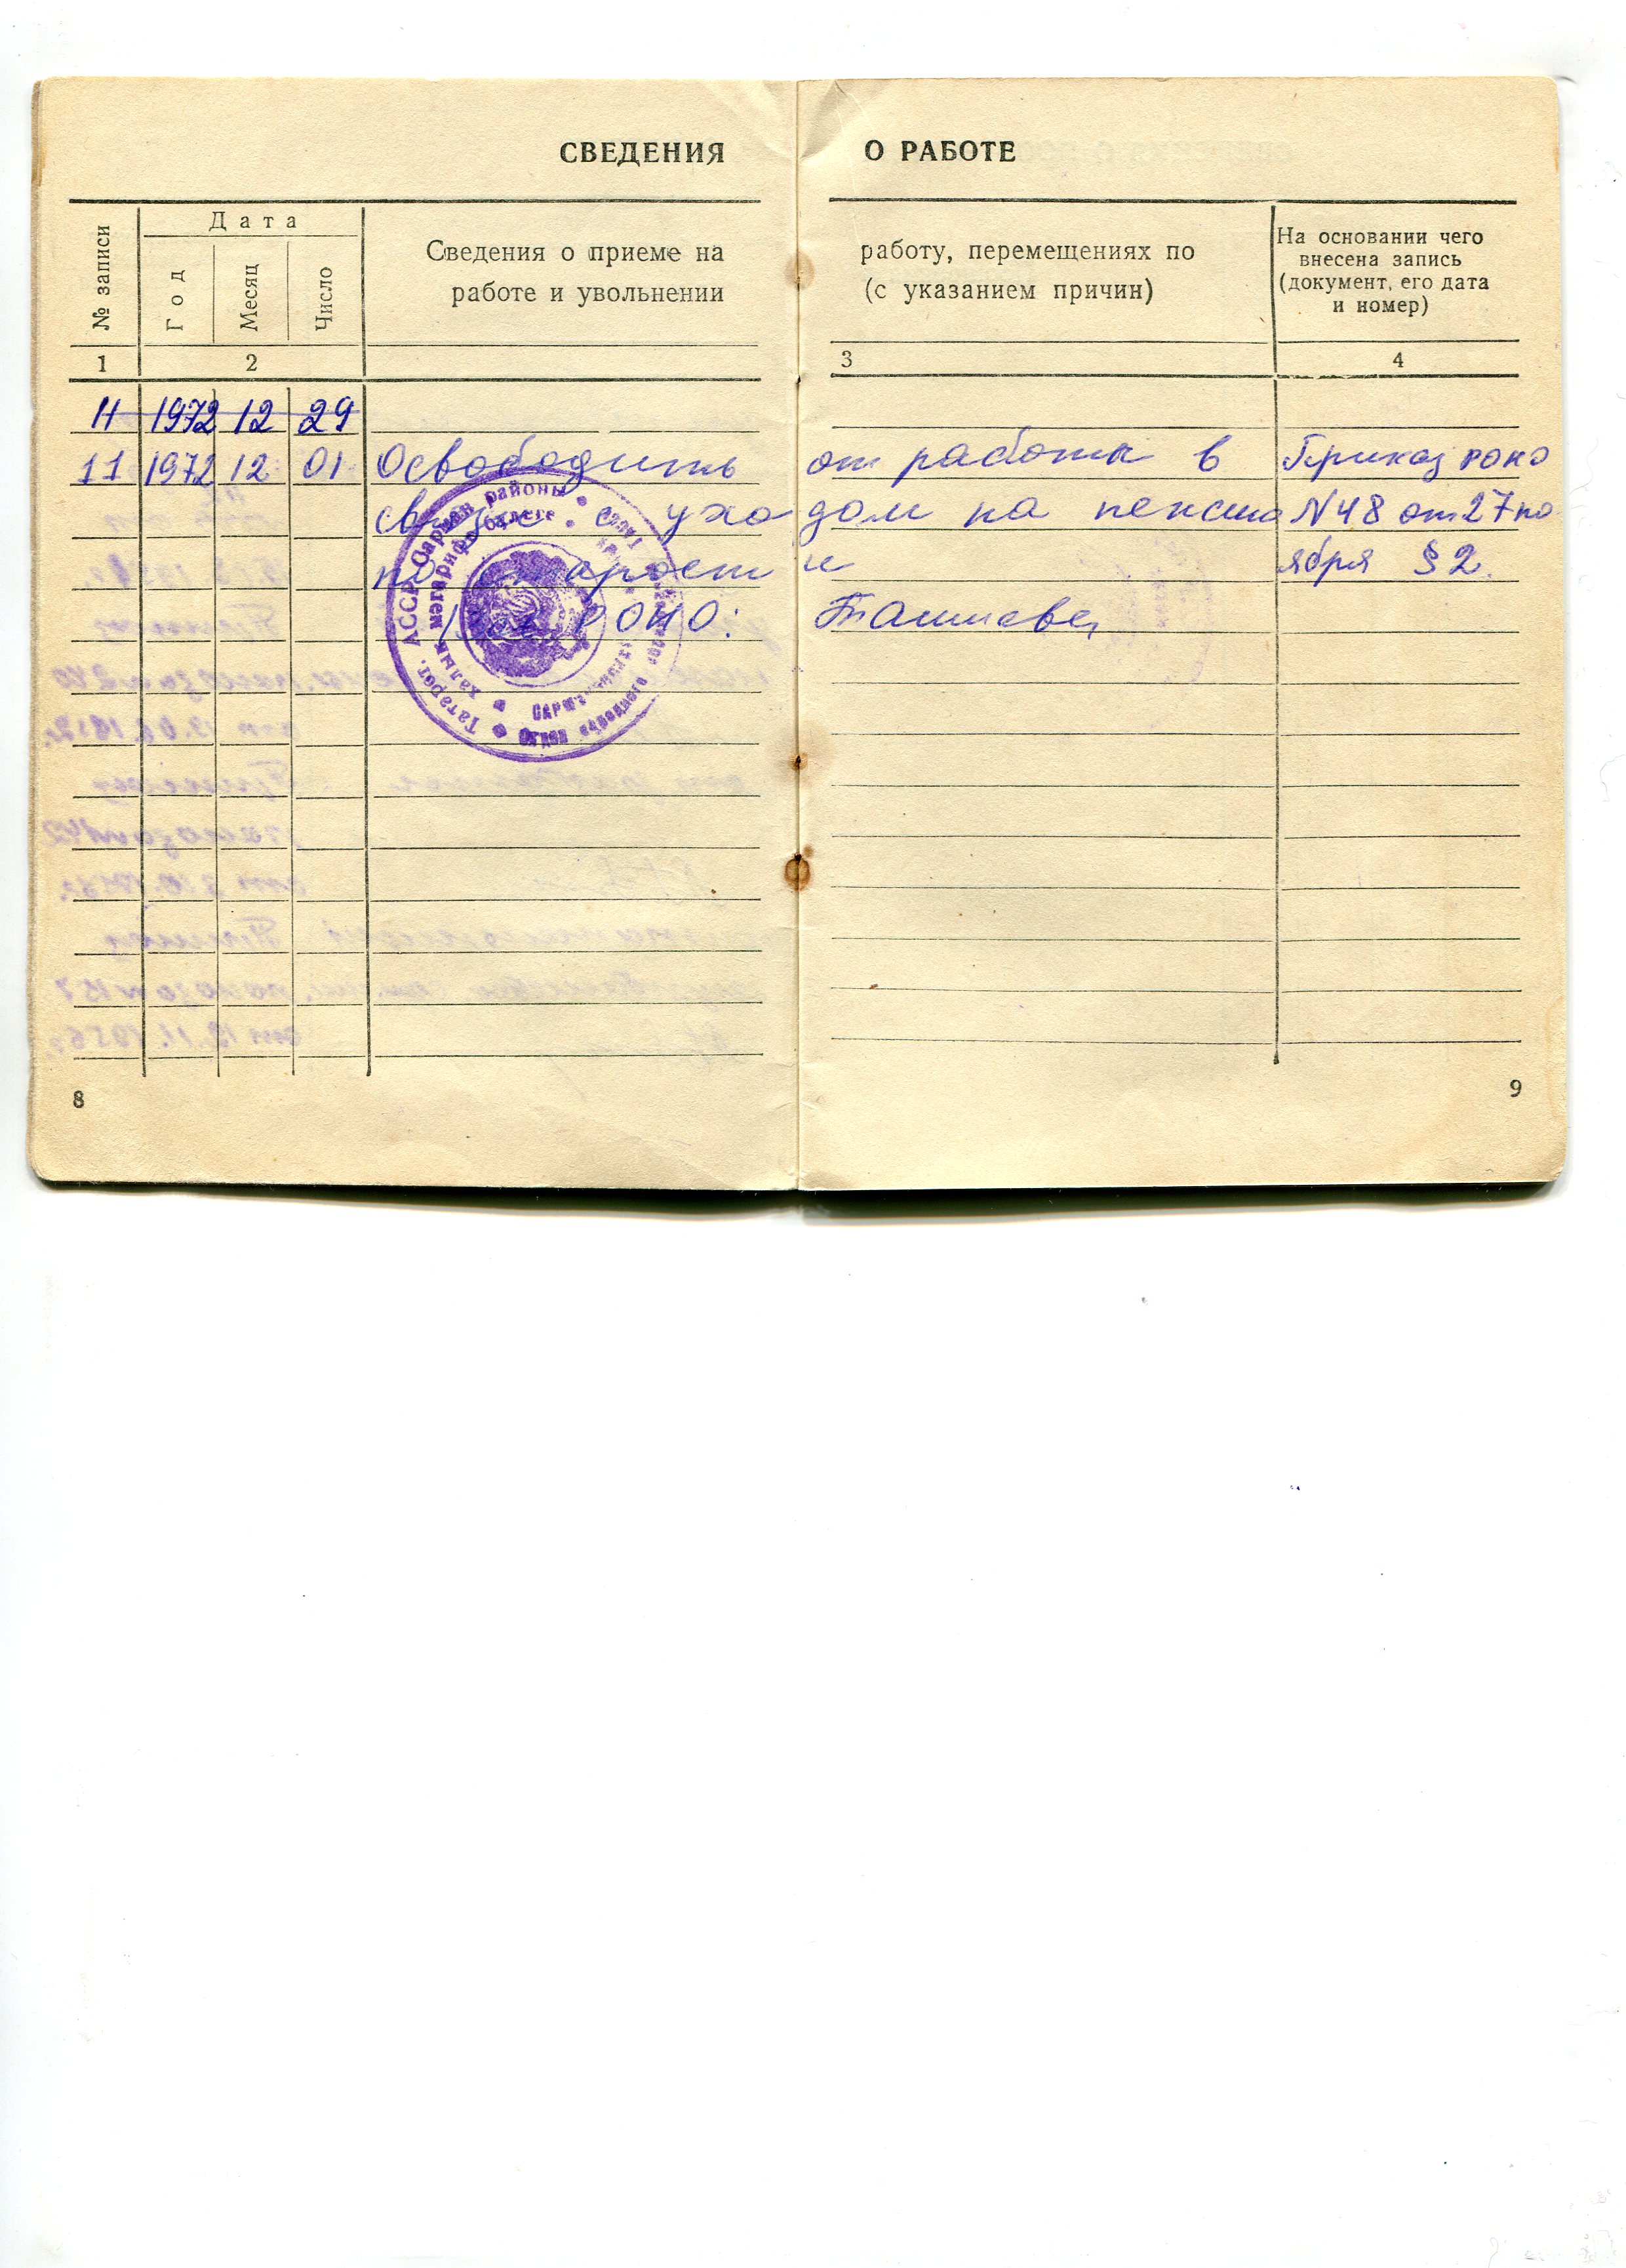 СВЕДЕНИЯ О РАБОТЕ
№ записи
Дата
Год
Месяц
Число
Сведения о приеме на работу, перемещениях по
работе и увольнении (с указанием причин)
На основании чего
внесена запись
(документ, его дата
и номер)
1 2 3 4
11 1972 12 29
11 1972 12 01 Освободить от работы в Приказ роно
связи с уходом на пенсию N48 от 27 но
по старости ября §2.
РОНО:
Татарст. АССР Сарман районы
халык мәгарифе бүлеге
8
9